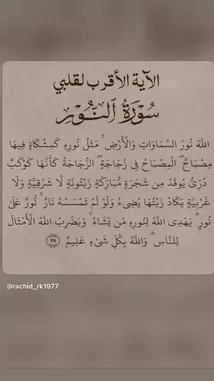 الآية الأقرب لقلبي
سُورَةُ النُّورِ
اللَّهُ نُورُ السَّمَاوَاتِ وَالْأَرْضِ ۚ مَثَلُ نُورِهِ كَمِشْكَاةٍ فِيهَا
مِصْبَاحٌ ۖ الْمِصْبَاحُ فِي زُجَاجَةٍ ۖ الزُّجَاجَةُ كَأَنَّهَا كَوْكَبٌ
دُرِّيٌّ يُوقَدُ مِن شَجَرَةٍ مُّبَارَكَةٍ زَيْتُونَةٍ لَّا شَرْقِيَّةٍ وَلَا
غَرْبِيَّةٍ يَكَادُ زَيْتُهَا يُضِيءُ وَلَوْ لَمْ تَمْسَسْهُ نَارٌ ۚ نُّورٌ عَلَىٰ
نُورٍ ۗ يَهْدِي اللَّهُ لِنُورِهِ مَن يَشَاءُ ۚ وَيَضْرِبُ اللَّهُ الْأَمْثَالَ
لِلنَّاسِ ۗ وَاللَّهُ بِكُلِّ شَيْءٍ عَلِيمٌ ٣٥
@rachid_rk1977